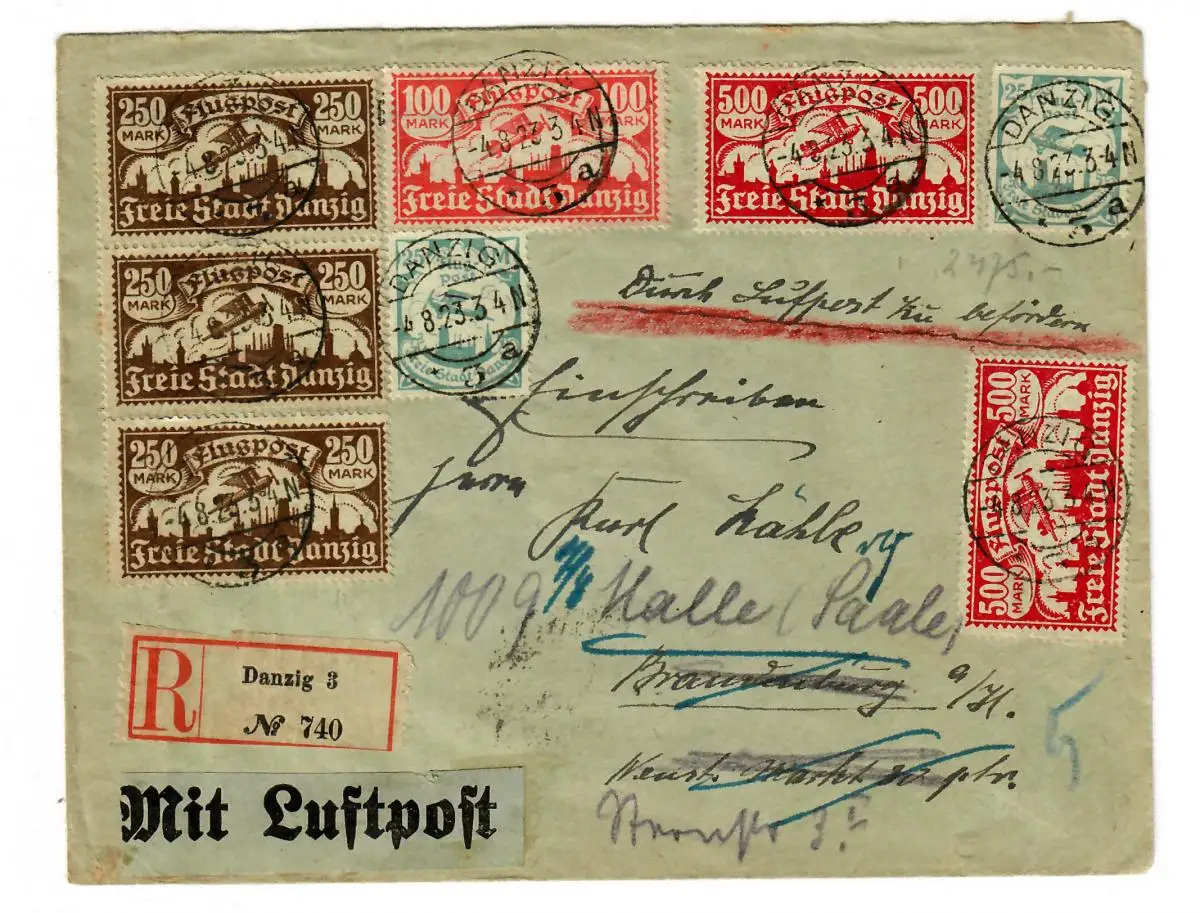 250 Flugpost 250
MARK MARK
Freie Stadt Danzig
100 Flugpost 100
MARK MARK
Freie Stadt Danzig
500 Flugpost 500
MARK MARK
Freie Stadt Danzig
25
DANZIG
-4.8.23.3-4N
* 5 a
250 Flugpost 250
MARK MARK
Freie Stadt Danzig
25 M
Flug
Post
Freie Stadt Danzig
DANZIG
-4.8.23.3-4N
* 5 a
250 Flugpost 250
MARK MARK
Freie Stadt Danzig
2475.-
Durch Luftpost zu befördern
500 Flugpost 500
MARK MARK
Freie Stadt Danzig
Einschreiben
Herrn
Karl
100g Halle (Saale)
Brandenburg a/H.
Neust. Markt ptr.
5
R
Danzig 3
№ 740
Mit Luftpost